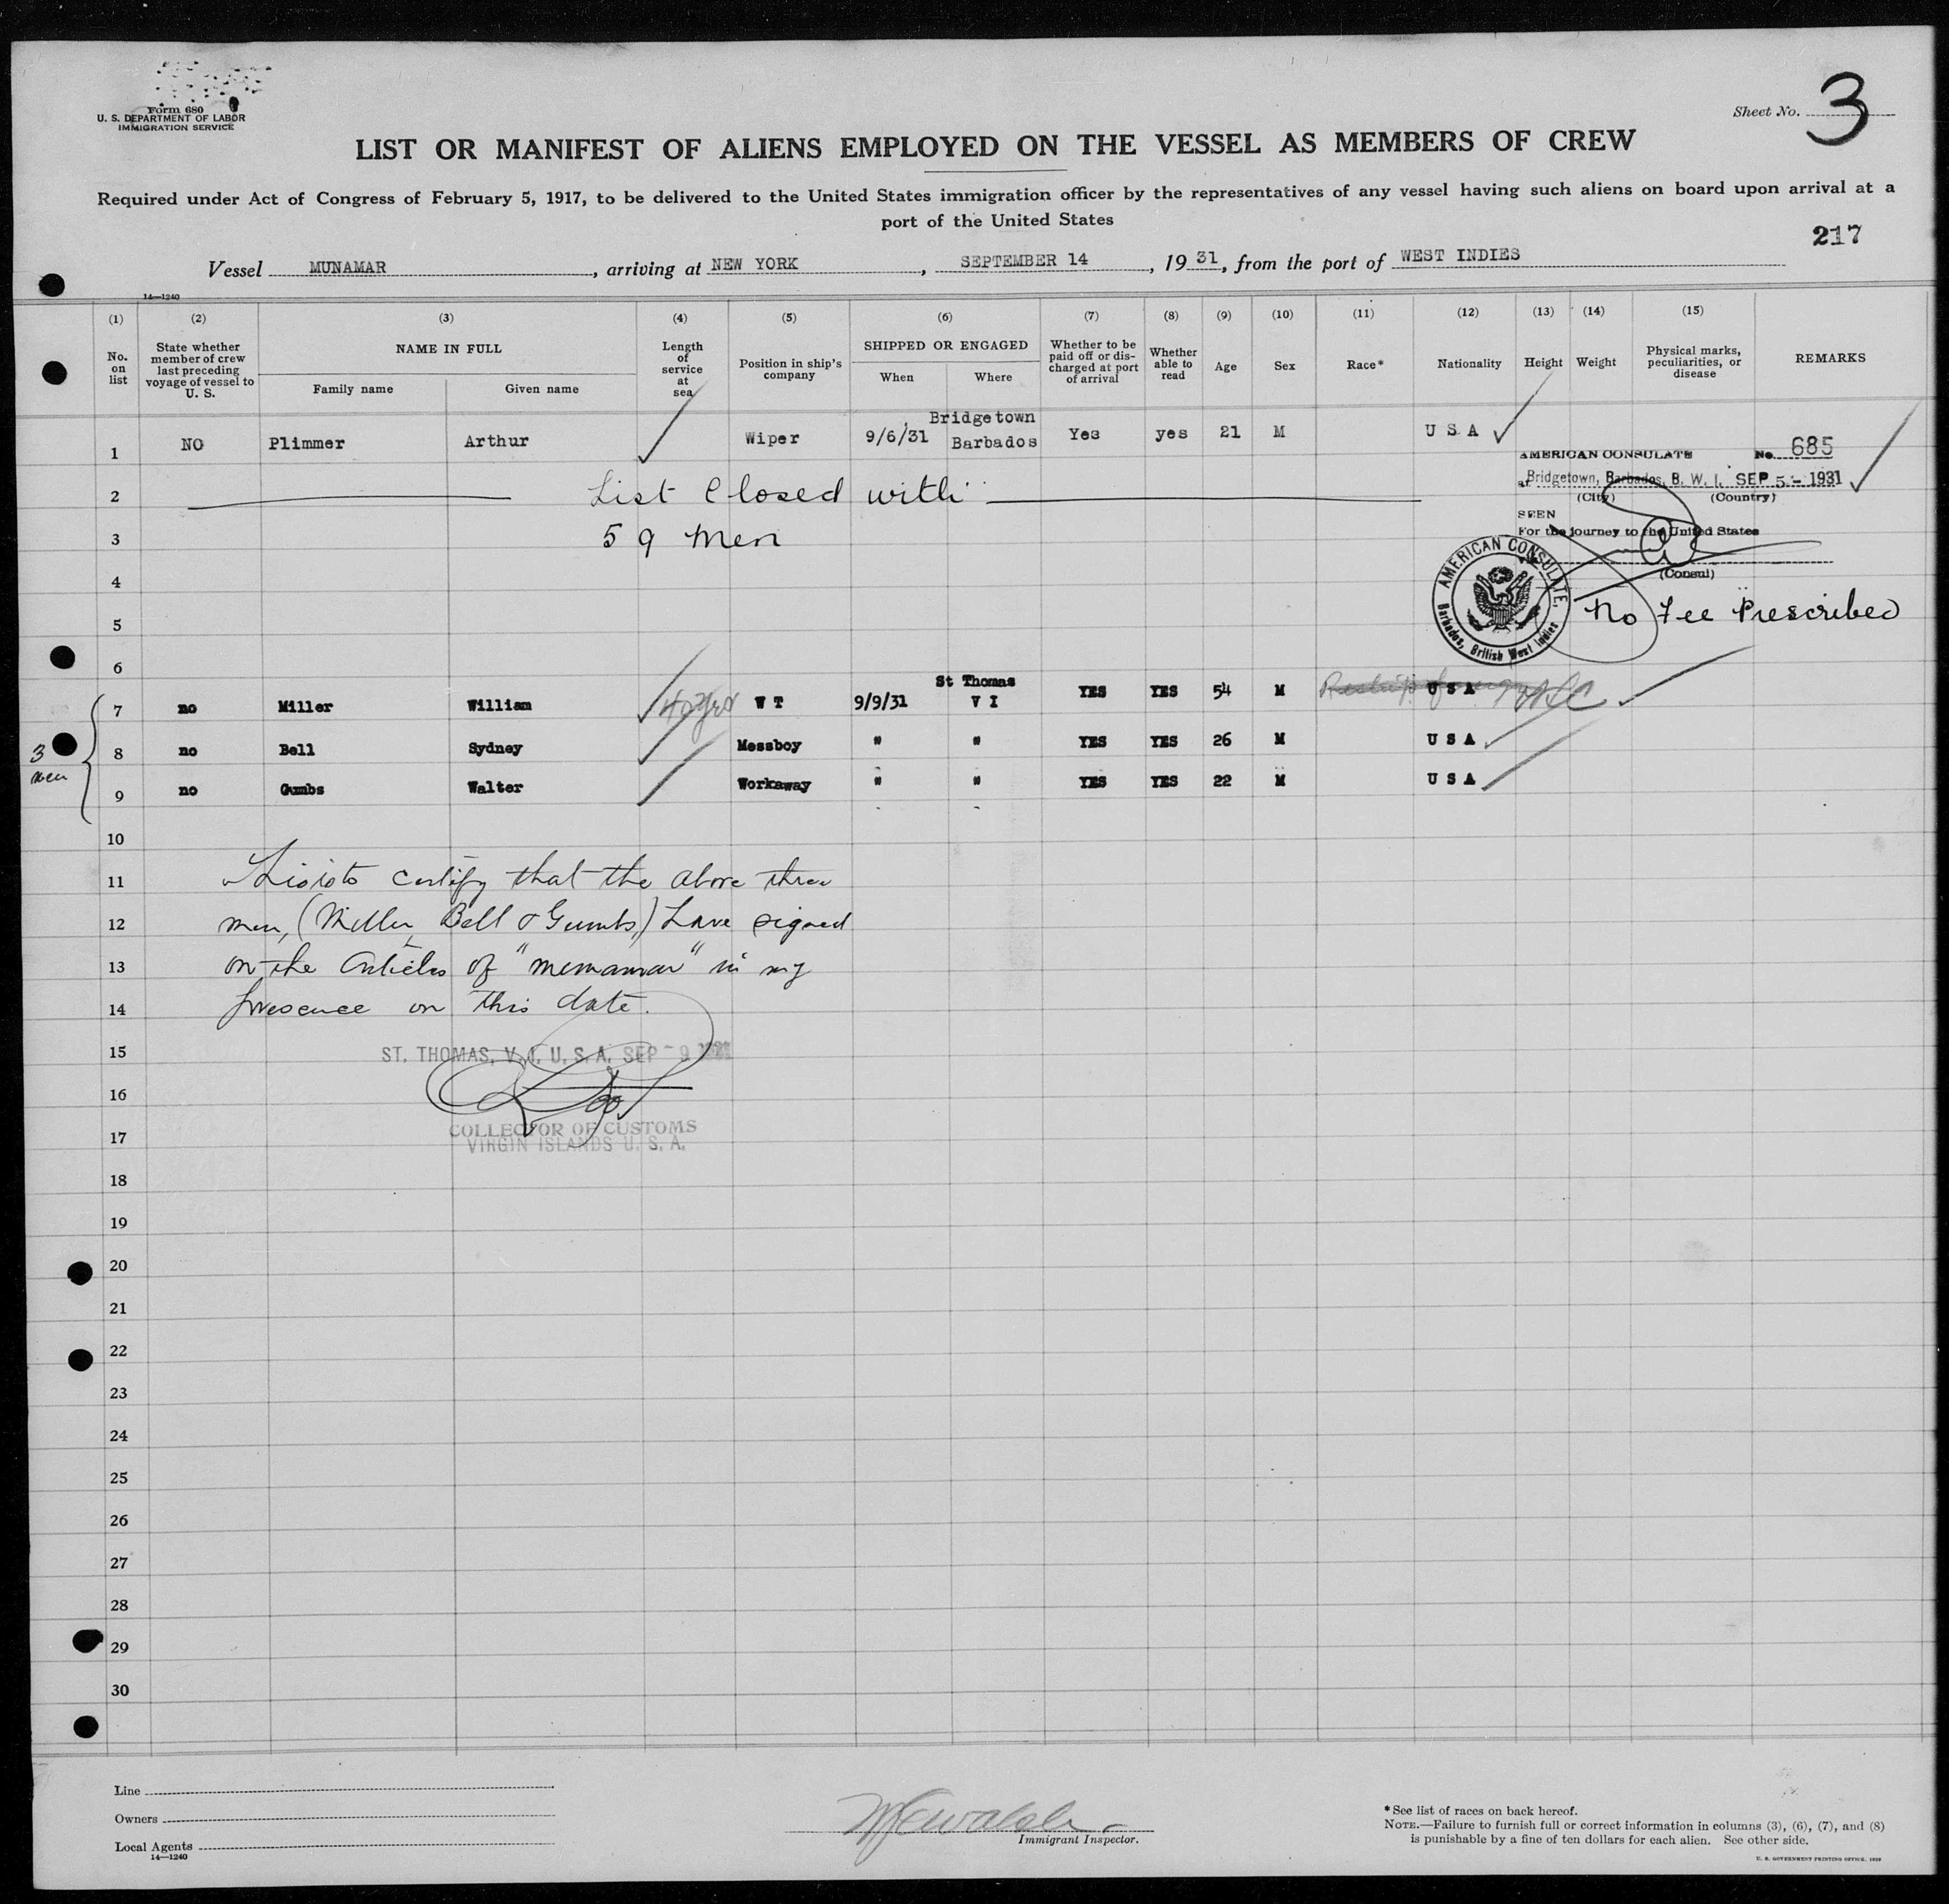 Form 680
U. S. DEPARTMENT OF LABOR
IMMIGRATION SERVICE
Sheet No. 3
LIST OR MANIFEST OF ALIENS EMPLOYED ON THE VESSEL AS MEMBERS OF CREW
Required under Act of Congress of February 5, 1917, to be delivered to the United States immigration officer by the representatives of any vessel having such aliens on board upon arrival at a
port of the United States
217
Vessel MUNAMAR, arriving at NEW YORK, SEPTEMBER 14, 1931, from the port of WEST INDIES
14—1240
(1) (2) (3) (4) (5) (6) (7) (8) (9) (10) (11) (12) (13) (14) (15)
No. on list
State whether member of crew last preceding voyage of vessel to U. S.
NAME IN FULL
Family name Given name
Length of service at sea
Position in ship's company
SHIPPED OR ENGAGED
When Where
Whether to be paid off or discharged at port of arrival
Whether able to read
Age
Sex
Race*
Nationality
Height
Weight
Physical marks, peculiarities, or disease
REMARKS
1 NO Plimmer Arthur Wiper 9/6/31 Bridgetown Barbados Yes yes 21 M U S A
AMERICAN CONSULATE No. 685
at Bridgetown, Barbados, B. W. I. SEP 5 - 1931
(City) (Country)
SEEN
For the journey to the United States
(Consul)
AMERICAN CONSULATE, Barbados, British West Indies
No Fee Prescribed
2 List Closed with
3 59 Men
4
5
6
3 men
7 no Miller William 40 yrs W T 9/9/31 St Thomas V I YES YES 54 M U S A
8 no Bell Sydney Messboy " " YES YES 26 M U S A
9 no Gumbs Walter Workaway " " YES YES 22 M U S A
10
11 This is to certify that the above three
12 men, (Miller, Bell & Gumbs,) have signed
13 on the Articles of "Munamar" in my
14 presence on this date.
15 ST. THOMAS, V. I. U. S. A. SEP - 9 1931
16
17 COLLECTOR OF CUSTOMS
VIRGIN ISLANDS U. S. A.
18
19
20
21
22
23
24
25
26
27
28
29
30
Line
Owners
Local Agents
14—1240
Immigrant Inspector.
* See list of races on back hereof.
NOTE.—Failure to furnish full or correct information in columns (3), (6), (7), and (8)
is punishable by a fine of ten dollars for each alien. See other side.
U. S. GOVERNMENT PRINTING OFFICE, 1929